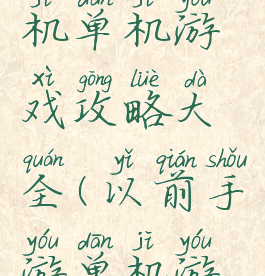 机单机游
xì gōng lüè dà
戏攻略大
quán yǐ qián shǒu
全(以前手
yóu dān jī yóu
游单机游